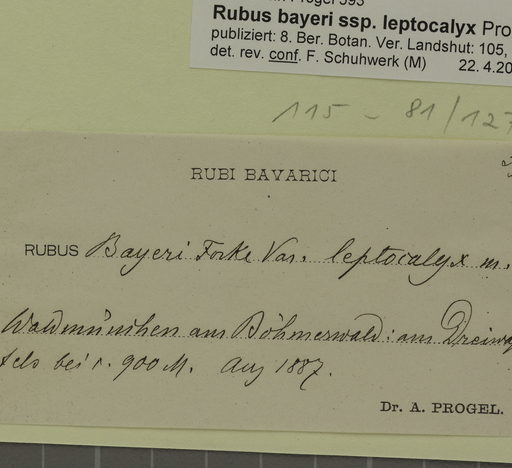 Progel 593
Rubus bayeri ssp. leptocalyx Pro
publiziert: 8. Ber. Botan. Ver. Landshut: 105,
det. rev. conf. F. Schuhwerk (M) 22. 4. 20
115 - 81/127
RUBI BAVARICI
RUBUS Bayeri Focke Var. leptocalyx m.
Waldmünchen am Böhmerwald: am Dreiwap
fels bei c. 900 M. Aug 1887.
Dr. A. PROGEL.